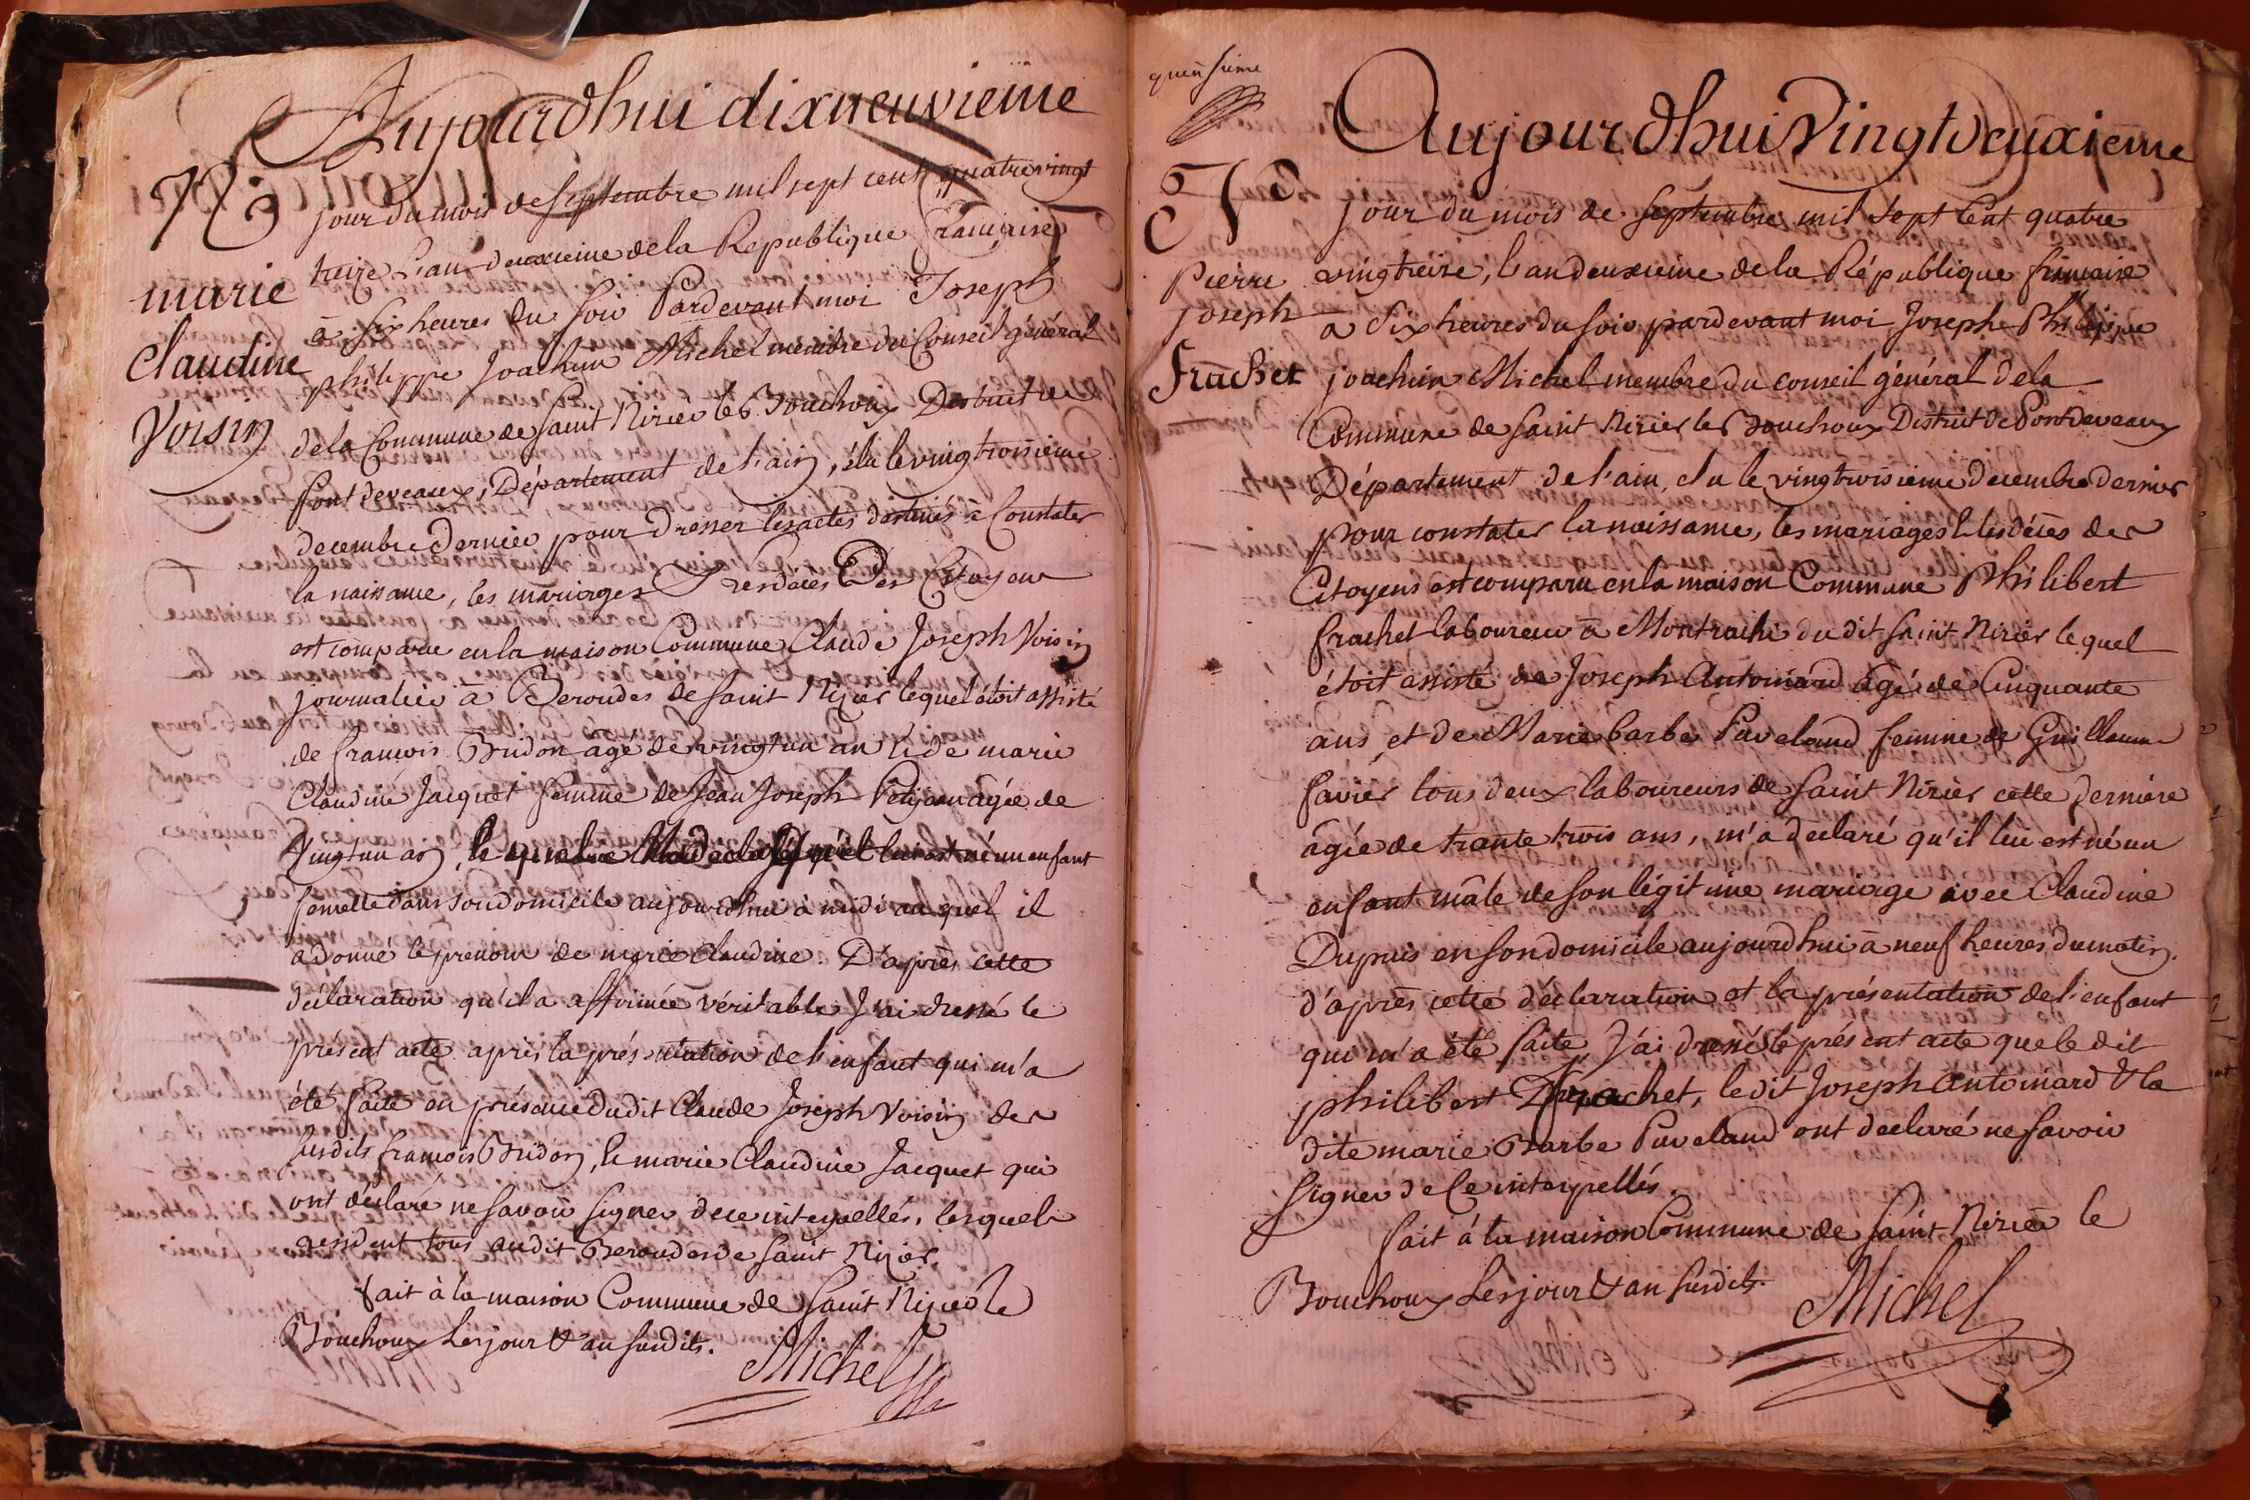 Aujourdhui dixneuvieme
Né
marie
Claudine
Voisin
jour du mois de Septembre mil sept cent quatrevingt
treize L'an deuxieme de la Republique francaise
à six heures du soir Pardevant moi Joseph
philippe Joachim Michel membre du Conseil général
de la Commune de Saint Nizier les Bouchoux District de
Pontdevaux, Département de l'ain, élu le vingtroisieme
decembre dernier pour dresser les actes destinés à Constater
la naissance, les mariages & les décès Des Citoyens
est comparu en la maison Commune Claude Joseph Voisin
journalié à Beroudes de Saint Nizier lequel étoit assisté
de francois Bridon agé de vingtun an & de marie
Claudine Jacquet femme de Jean Joseph agée de
vingtun an, né un enfant
femelle dans son domicile aujourdhui à midi auquel il
a donné le prenom de marie Claudine. D'après cette
déclaration qu'il a affirmée véritable J'ai dressé le
présent acte après la présentation de l'enfant qui m'a
été faite en présence dudit Claude Joseph Voisin des
susdits francois Bridon, & marie Claudine Jacquet qui
ont déclaré ne savoir signer de ce interpellés, lesquels
resident tous audit Beroudes de Saint Nizier.
fait à la maison Commune de Saint Nizier le
Bouchoux Les jour & an susdits.
Michel
Né
Pierre
Joseph
frachet
Aujourdhui Vingtdeuxieme
jour du mois de Septembre mil sept Cent quatre
vingtreize, l'an deuxieme de la République francaise
à Six heures du soir pardevant moi Joseph Philippe
joachim Michel membre du conseil général de la
Commune de Saint Nizier les Bouchoux District de Pontdevaux
Département de l'ain, élu le vingtroisieme decembre dernier
pour constater la naissance, les mariages & les décès des
Citoyens est comparu en la maison Commune Philibert
frachet laboureur à Montrachi dudit Saint Nizier lequel
étoit assisté de Joseph Antoinard âgé de Cinquante
ans et de Marie barbe Paveland femme de Guillaume
favier tous deux laboureurs de Saint Nizier cette derniere
âgée de trante trois ans, m'a déclaré qu'il lui est né un
enfant mâle de son légitime mariage avec Claudine
Dupuis en son domicile aujourdhui à neuf heures du matin.
d'après cette déclaration et la présentation de l'enfant
qui m'a été faite, J'ai dressé le présent acte que le dit
philibert frachet, ledit Joseph Antoinard & la
dite marie Barbe Paveland ont declaré ne savoir
signer de Ce interpellés.
fait à la maison Commune de Saint Nizier le
Bouchoux Les jour & an susdits.
Michel